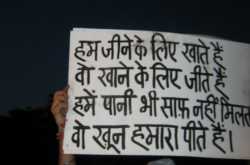 हम जीने के लिए खाते हैं
वो खाने के लिए जीते हैं
हमें पानी भी साफ़ नहीं मिलता
वो खून हमारा पीते हैं।